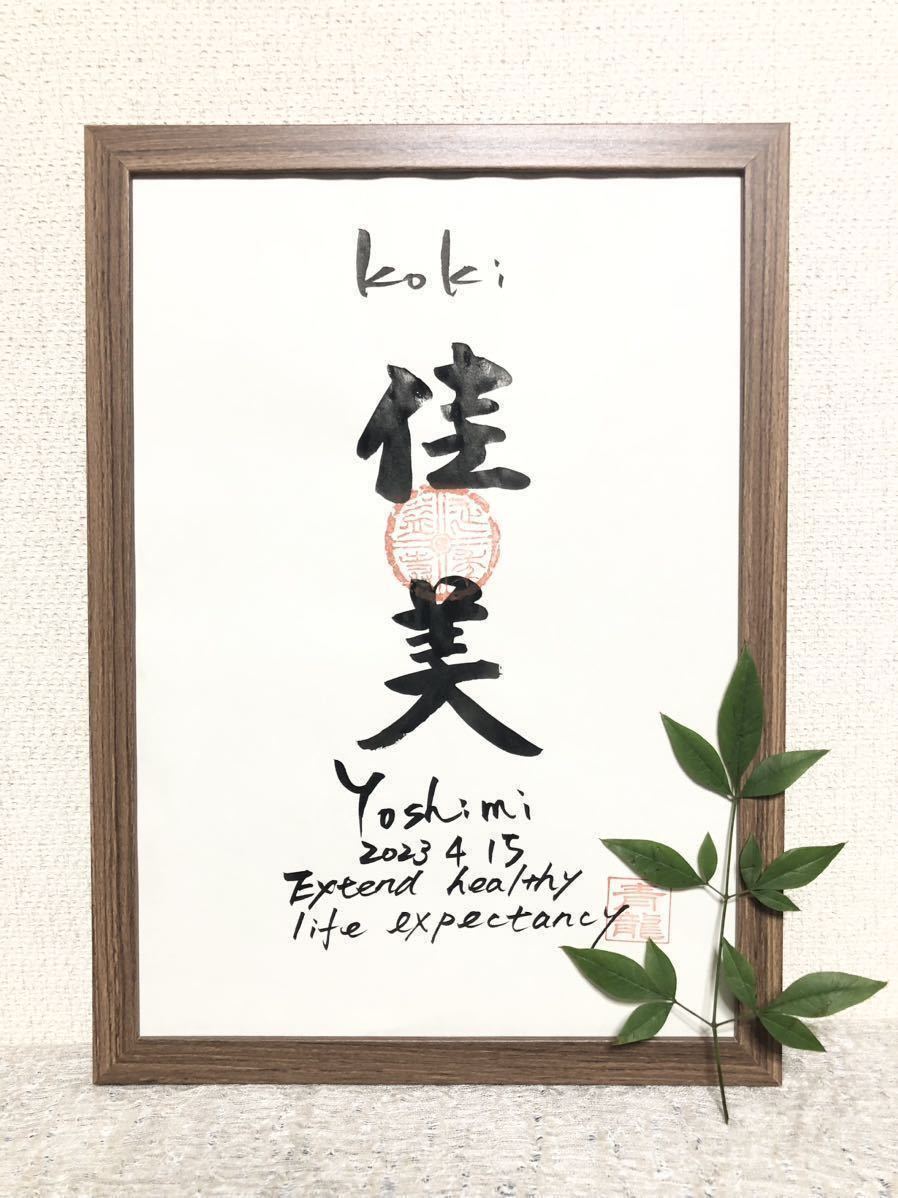 koki
佳
美
Yoshimi
2023 4 15
Extend healthy
life expectancy
青
龍